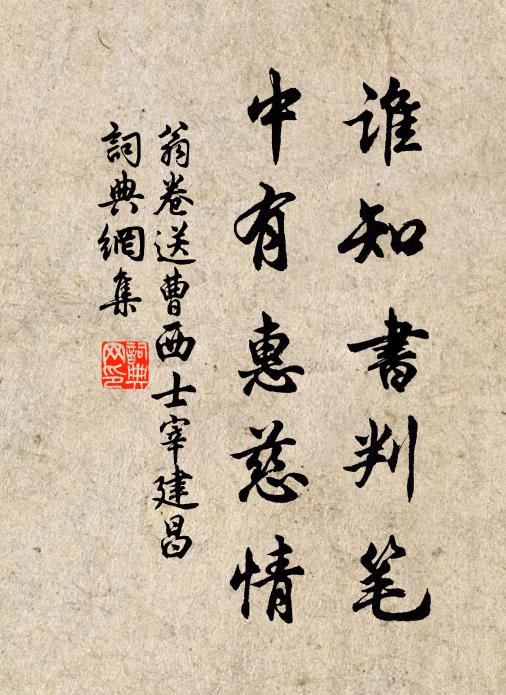 谁知書判笔
中有惠慈情
翁卷送曹西士宰建昌
詞典網集
詞典网印